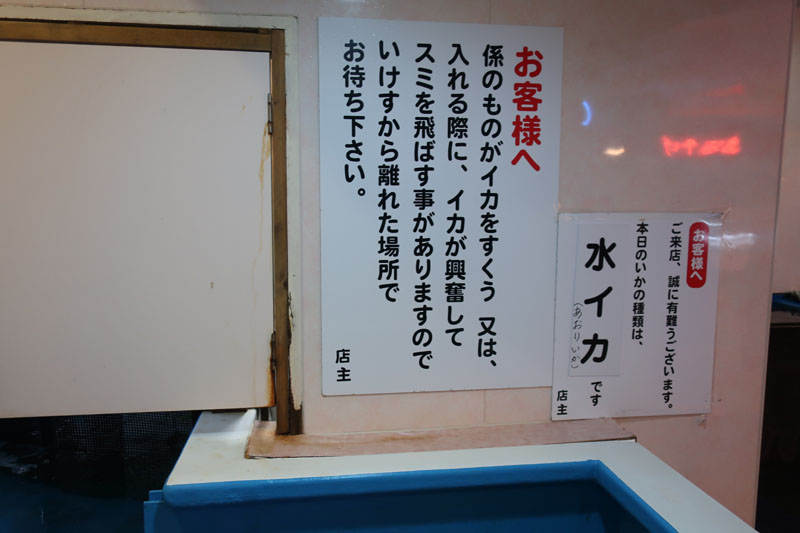 お客様へ
係のものがイカをすくう 又は、
入れる際に、イカが興奮して
スミを飛ばす事がありますので
いけすから離れた場所で
お待ち下さい。
店主
お客様へ
ご来店、誠に有難うございます。
本日のいかの種類は、
水イカ
(あおりいか)
です
店主